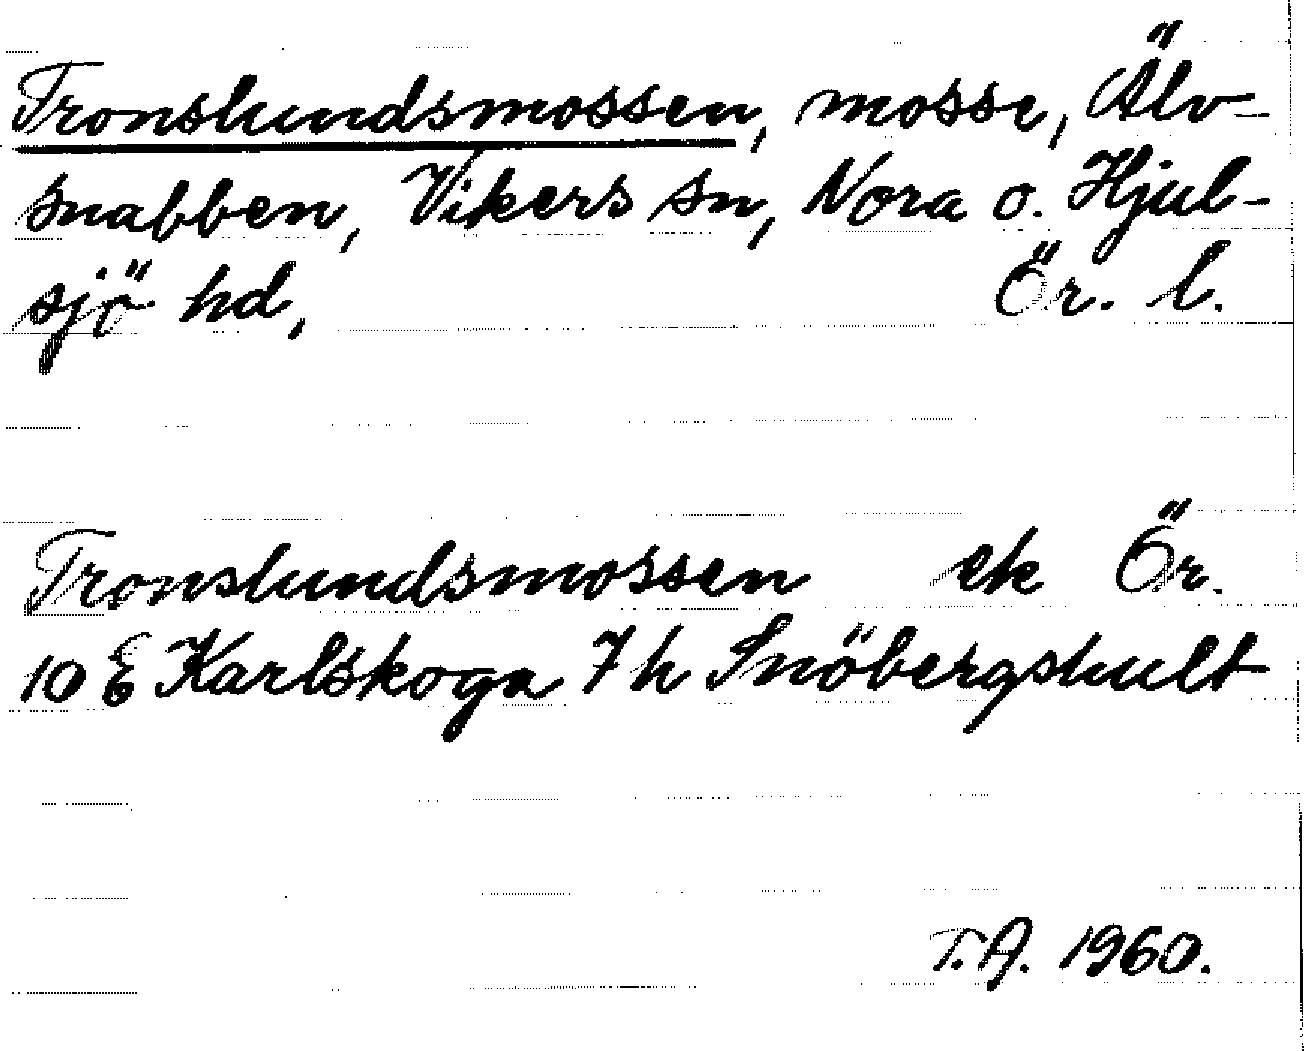 Tronslundsmossen, mosse, Älv-
snabben, Vikers sn, Nora o. Hjul-
sjö hd, Ör. l.
Tronslundsmossen ek Ör.
10 E Karlskoga 7 h Snöbergshult
T.A. 1960.